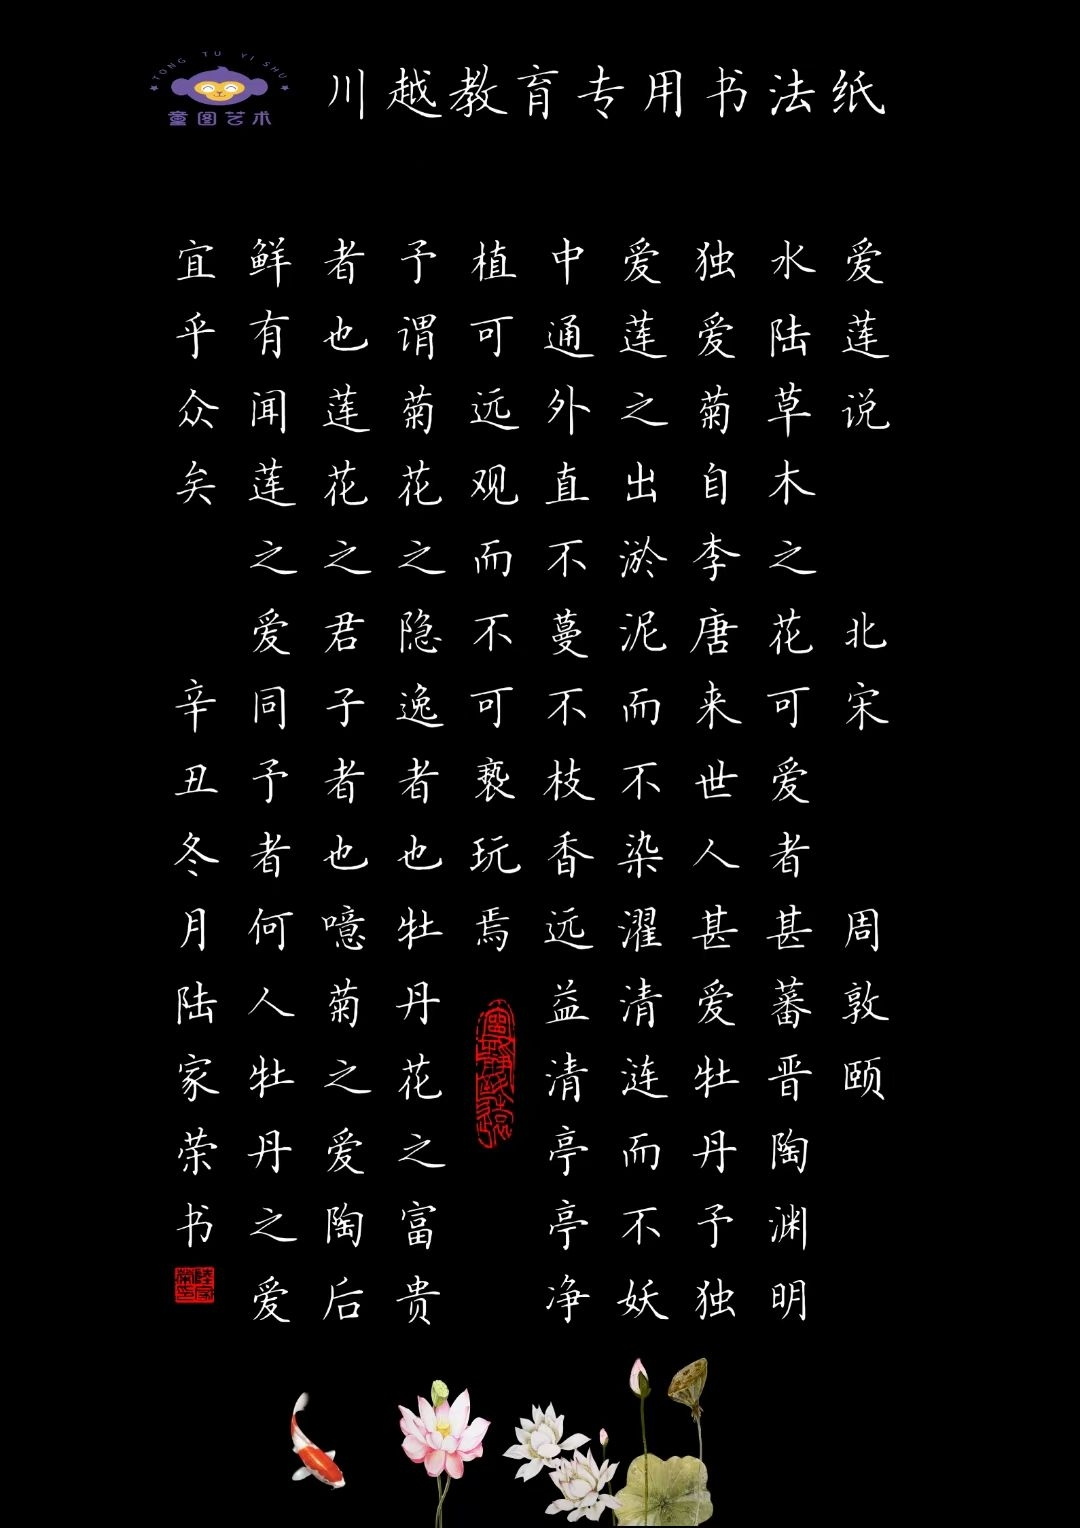 TONG TU YI SHU
童图艺术
川越教育专用书法纸
爱莲说 北宋 周敦颐
水陆草木之花可爱者甚蕃晋陶渊明
独爱菊自李唐来世人甚爱牡丹予独
爱莲之出淤泥而不染濯清涟而不妖
中通外直不蔓不枝香远益清亭亭净
植可远观而不可亵玩焉
予谓菊花之隐逸者也牡丹花之富贵
者也莲花之君子者也噫菊之爱陶后
鲜有闻莲之爱同予者何人牡丹之爱
宜乎众矣 辛丑冬月陆家荣书